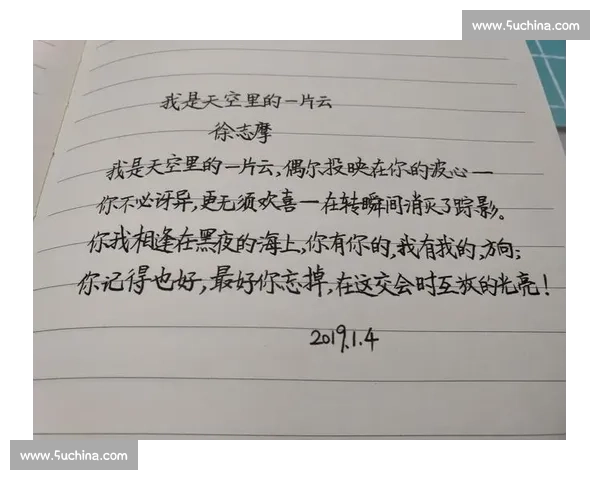 www.5uchina.com
我是天空里的一片云
徐志摩
我是天空里的一片云,偶尔投映在你的波心一
你不必讶异,更无须欢喜一在转瞬间消灭了踪影。
你我相逢在黑夜的海上,你有你的,我有我的,方向;
你记得也好,最好你忘掉,在这交会时互放的光亮!
2019.1.4
www.5uchina.com